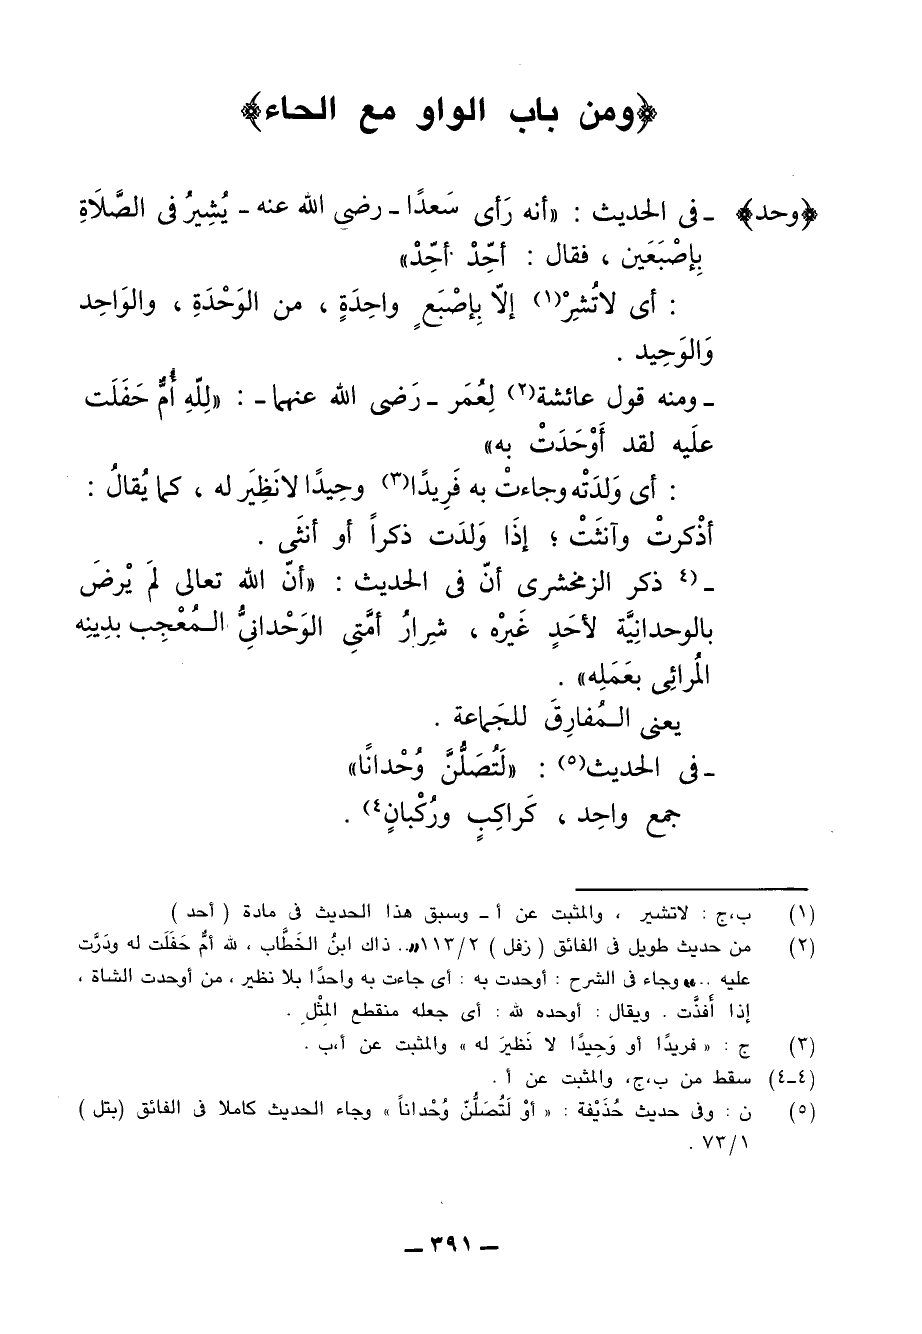 ﴿ومن باب الواو مع الحاء﴾
﴿وحد﴾ ـ فى الحديث : «أنه رَأى سَعدًا ـ رضى الله عنه ـ يُشِيرُ فى الصَّلَاةِ
بِإصْبَعَين ، فقال : أحِّدْ أحِّدْ»
: أى لاتُشِرْ(١) إلاّ بِإصْبَعٍ واحِدَةٍ ، من الوَحْدَةِ ، والوَاحِد
وَالوَحِيد .
ـ ومنه قول عائشة(٢) لِعُمَر ـ رَضى الله عنهما ـ : «لِلَّهِ أُمٌّ حَفَلَت
علَيه لقد أَوْحَدَتْ به»
: أى وَلدَتْه وجاءتْ به فَرِيدًا(٣) وحِيدًا لانَظِيَر له ، كما يُقالُ :
أذْكرتْ وآنثَتْ ؛ إذَا وَلدَت ذكراً أو أنثَى .
ـ (٤ ذكر الزمخشرى أنّ فى الحديث : «أنّ الله تعالى لَم يْرضَ
بالوحدانِيَّة لأحَدٍ غَيْرْه ، شِرارُ أمَّتِى الوَحْدانىُّ المُعْجِب بدِينِه
المُرائِى بعَمَلِه» .
يعنى المُفارِقَ للجَماعة .
ـ فى الحديث(٥) : «لَتُصَلُّنَّ وُحْدانًا»
جمع واحِد ، كَراكِبٍ ورُكْبانٍ٤) .
(١) ب،ج : لاتشير ، والمثبت عن أ ـ وسبق هذا الحديث فى مادة ( أحد )
(٢) من حديث طويل فى الفائق ( زفل ) ١١٣/٢ «.. ذاك ابنُ الخَطَّاب ، لله أمٌّ حَفَلَت له ودَرَّت
عليه ..» وجاء فى الشرح : أوحدت به : أى جاءت به واحدًا بلا نظير ، من أوحدت الشاة ،
إذا أفذَّت . ويقال : أوحده لله : أى جعله منقطع المِثْل .
(٣) ج : « فريدًا أو وَحِيدًا لا نَظيَر له » والمثبت عن أ،ب .
(٤ـ٤) سقط من ب،ج، والمثبت عن أ .
(٥) ن : وفى حديث حُذَيْفة : « أوْ لَتُصَلُّنّ وُحْداناً » وجاء الحديث كاملا فى الفائق (بتل )
٧٣/١ .
ـ ٣٩١ ـ